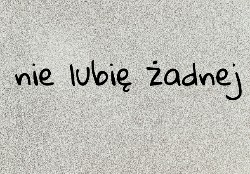 nie lubię żadnej